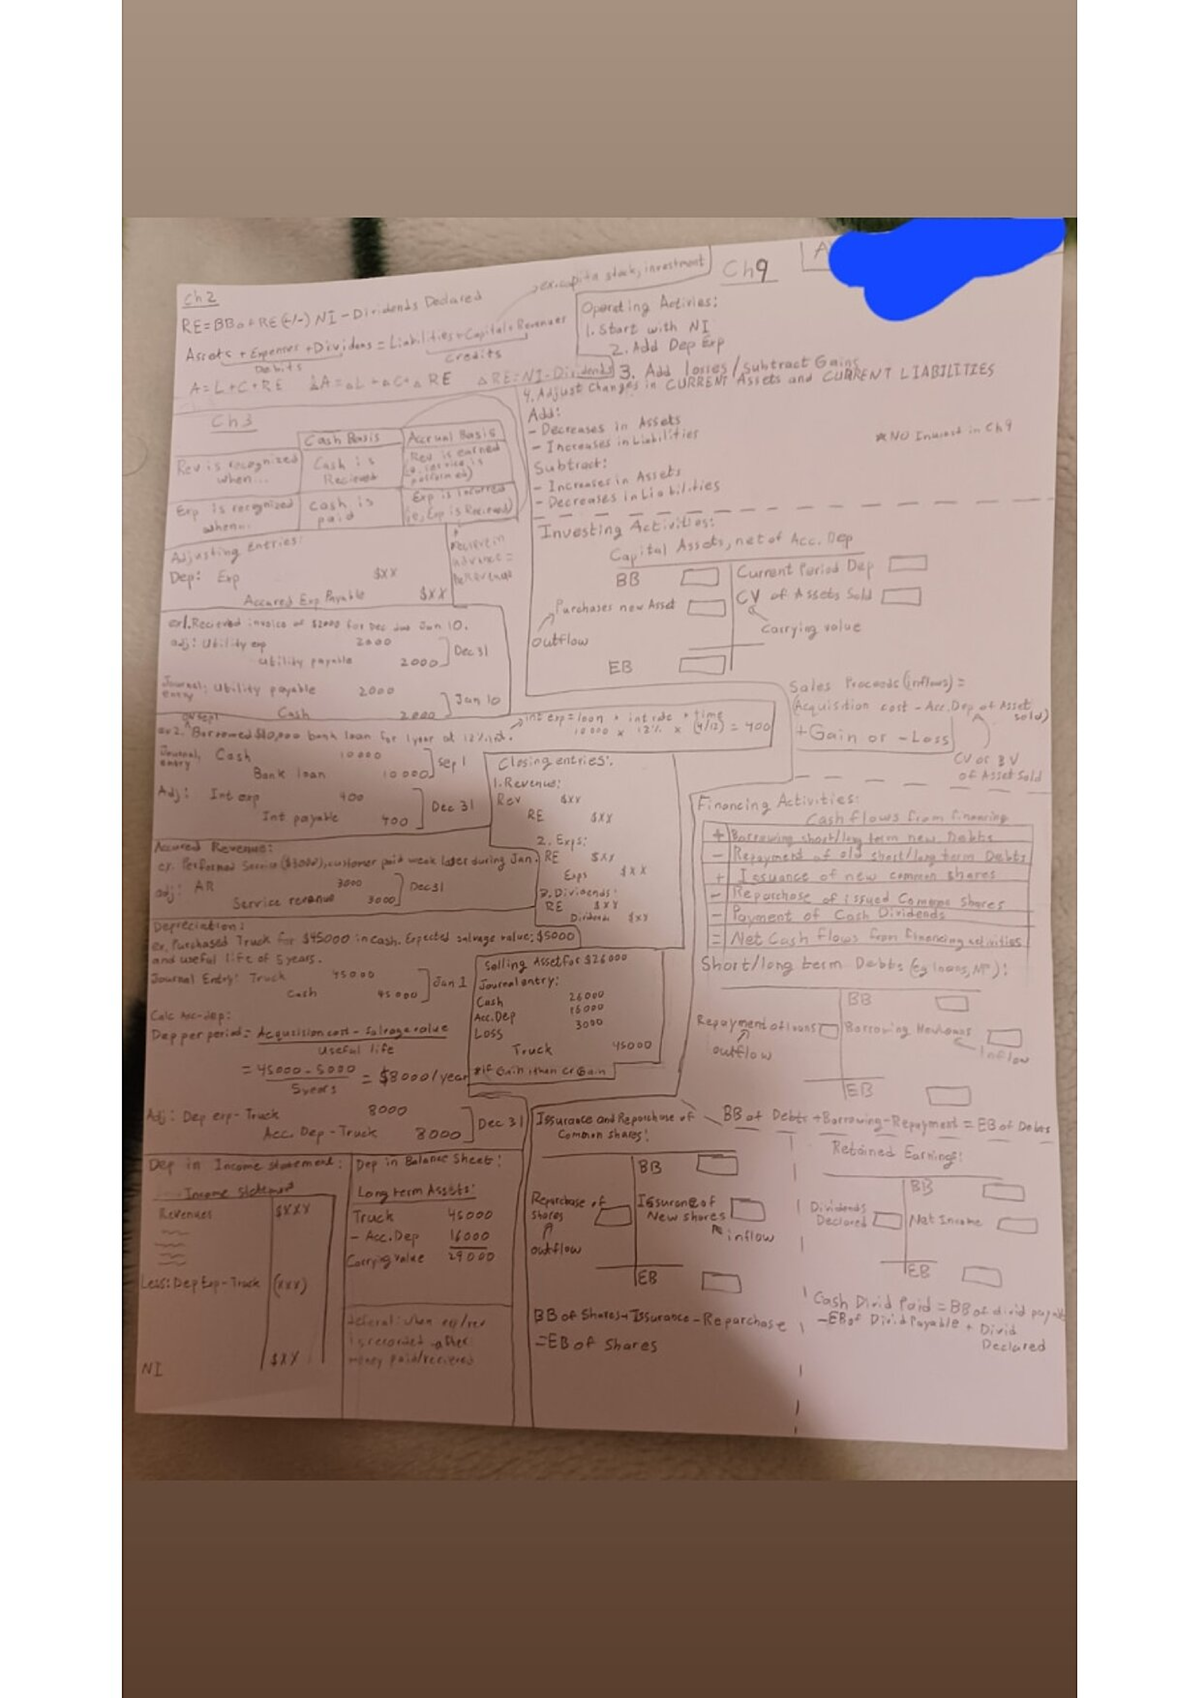 Ch 2
RE = BB of RE (+/-) NI - Dividends Declared
ex. capital stock, investment
Assets + Expenses + Dividends = Liabilities + Capital + Revenues
Debits
Credits
A = L + C + RE ΔA = ΔL + ΔC + ΔRE ΔRE = NI - Dividends
Ch 3
Cash Basis Accrual Basis
Rev is recognized when... Cash is Recieved Rev is earned (ie, service is performed)
Exp is recognized when... Cash is paid Exp is incurred (ie, Exp is Recieved)
Adjusting entries:
Dep: Exp $xx
Accured Exp Payable $xx
ex1. Recieved invoice of $2000 for Dec due Jan 10.
adj: Utility exp 2000
Utility payable 2000
Dec 31
Journal entry: Utility payable 2000
Cash 2000
Jan 10
on sep 1
ex2. Borrowed $10,000 bank loan for 1 year at 12% int.
int exp = loan × int rate × time
10000 × 12% × (4/12) = 400
Journal entry: Cash 10000
Bank loan 10000
Sep 1
Adj: Int exp 400
Int payable 400
Dec 31
Accured Revenue:
ex. Performed Service ($3000), customer paid week later during Jan.
adj: AR 3000
Service revenue 3000
Dec 31
Closing entries:
1. Revenue:
Rev $xx
RE $xx
2. Exps:
RE $xx
Exps $xx
3. Dividends:
RE $xx
Dividends $xx
Depreciation:
ex. Purchased Truck for $45000 in cash. Expected salvage value: $5000
and useful life of 5 years.
Journal Entry: Truck 45000
Cash 45000
Jan 1
Calc Acc-dep:
Dep per period = Acqusision cost - Salvage value
Useful life
= 45000 - 5000 = $8000/year
5 years
Adj: Dep exp - Truck 8000
Acc. Dep - Truck 8000
Dec 31
Selling Asset for $26000
Journal entry:
Cash 26000
Acc. Dep 16000
Loss 3000
Truck 45000
*If Gain then Cr Gain
Dep in Income statement:
Income statement
Revenues $XXX
Less: Dep Exp - Truck (xxx)
NI $XX
Dep in Balance Sheet:
Long term Assets:
Truck 45000
- Acc. Dep 16000
Carrying Value 29000
deferral: when exp/rev
is recorded after
money paid/recieved
Ch 9
A
Operating Activies:
1. Start with NI
2. Add Dep Exp
3. Add losses/Subtract Gains
4. Adjust Changes in CURRENT Assets and CURRENT LIABILITIES
Add:
- Decreases in Assets
- Increases in Liabilities
*NO Interest in Ch 9
Subtract:
- Increases in Assets
- Decreases in Liabilities
Investing Activities:
Capital Assets, net of Acc. Dep
BB
Current Period Dep
Purchases new Asset
CV of Assets Sold
outflow
Carrying value
EB
Sales Proceeds (inflows) =
(Acquisition cost - Acc. Dep of Asset sold)
+ Gain or - Loss
CV or BV
of Asset Sold
Financing Activities:
Cash flows from financing
+ Borrowing short/long term new Debts
- Repayment of old short/long term Debts
+ Issuance of new common shares
- Reparchase of issued Common Shares
- Payment of Cash Dividends
= Net Cash flows from financing activities
Short/long term Debts (eg loans, NP):
BB
Repayment of loans
Borrowing New loans
outflow
Inflow
EB
BB of Debts + Borrowing - Repayment = EB of Debts
Issurance and Reparchase of
Common shares:
BB
Reparchase of shares
Issurance of New shares
outflow
inflow
EB
BB of Shares + Issurance - Reparchase
= EB of Shares
Retained Earnings:
BB
Dividends Declared
Net Income
EB
Cash Divid Paid = BB of divid payable
- EB of Divid Payable + Divid
Declared